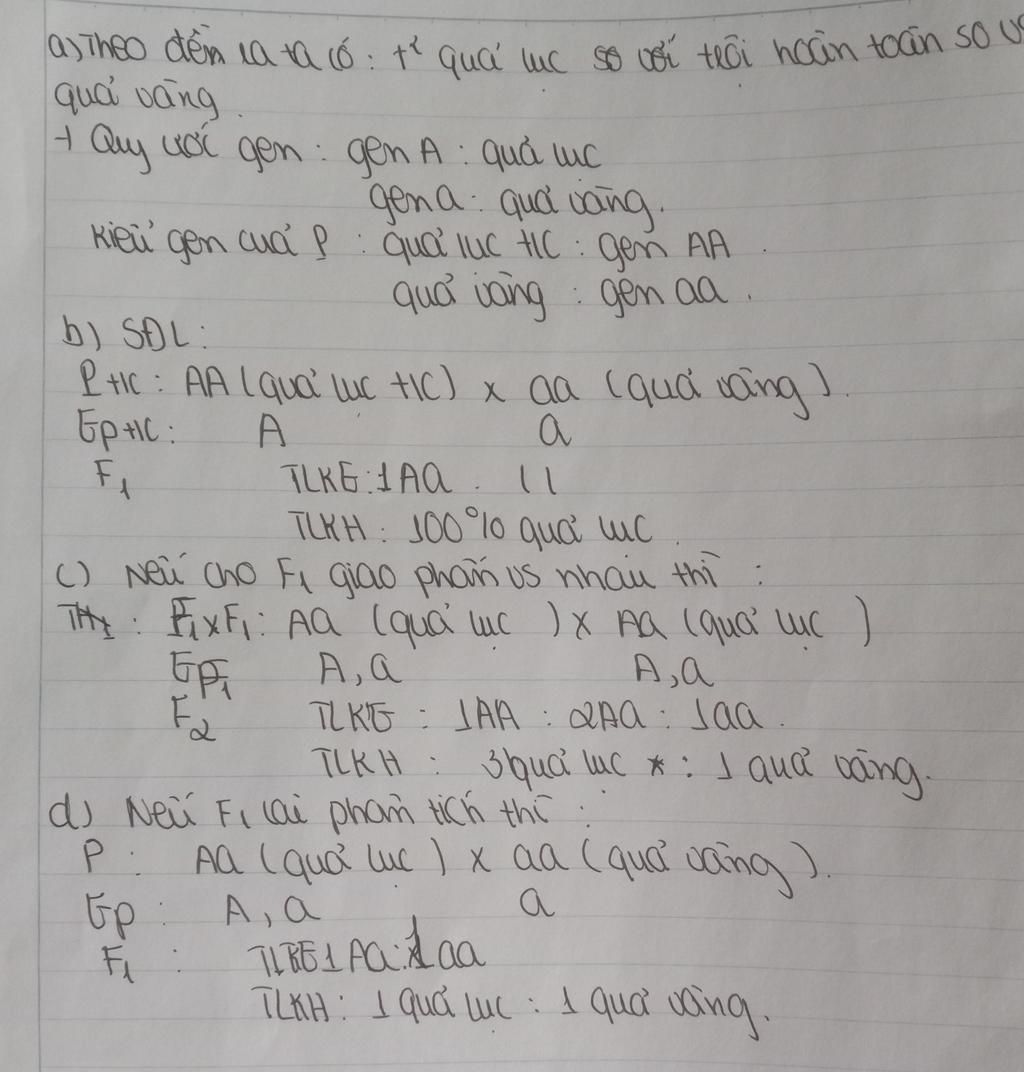 a) Theo đến ra ta có: t² quả lục so với trội hoàn toàn so vs
quả vàng
→ Quy ước gen: gen A: quả lục
gen a: quả vàng.
Kiểu gen của P: quả lục t/c: gen AA.
quả vàng: gen aa.
b) SĐL:
Pt/c: AA (quả lục t/c) x aa (quả vàng).
Gpt/c: A a
F1 TLKG: 1Aa.
TLKH: 100% quả lục.
c) Nếu cho F1 giao phấn vs nhau thì:
F1xF1: Aa (quả lục) x Aa (quả lục)
GF1 A, a A, a
F2 TLKG: 1AA: 2Aa: 1aa.
TLKH: 3 quả lục : 1 quả vàng.
d) Nếu F1 lai phân tích thì:
P: Aa (quả lục) x aa (quả vàng).
Gp: A, a a
F1: TLKG 1Aa: 1aa
TLKH: 1 quả lục: 1 quả vàng.